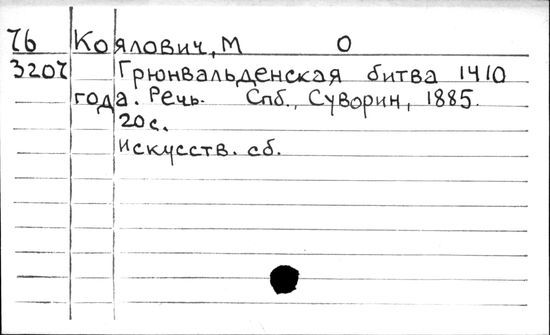 76 Коялович, М О
3207 Грюнвальденская битва 1410
года. Речь. Спб., Суворин, 1885.
20 с.
Искусств. сб.